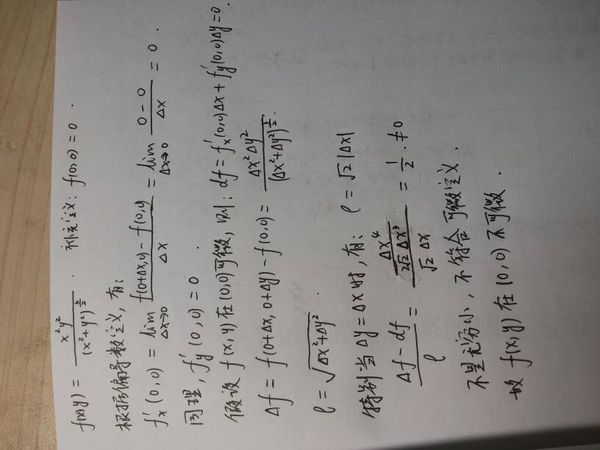 f(x,y) = x²y² / (x²+y²)^(3/2) . 补充定义: f(0,0) = 0 .
根据偏导数定义, 有:
f'ₓ(0,0) = lim_{Δx→0} (f(0+Δx,0) - f(0,0)) / Δx = lim_{Δx→0} (0-0) / Δx = 0 .
同理, f'_y(0,0) = 0 .
假设 f(x,y) 在(0,0)可微, 则: df = f'ₓ(0,0)Δx + f'_y(0,0)Δy = 0.
Δf = f(0+Δx, 0+Δy) - f(0,0) = Δx²Δy² / (Δx²+Δy²)^(3/2) .
ρ = √(Δx²+Δy²) .
特别当 Δy = Δx 时, 有: ρ = √2 |Δx|
(Δf - df) / ρ = (Δx⁴ / (2√2 Δx³)) / (√2 Δx) = 1/2 . ≠0
不是无穷小, 不符合可微定义 .
故 f(x,y) 在 (0,0) 不可微 .